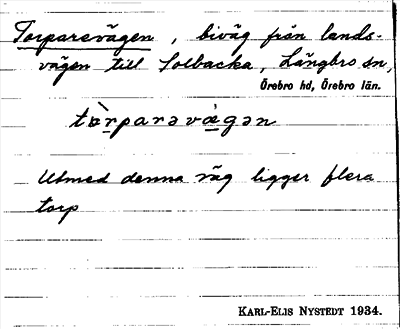 Torparevägen, biväg från lands-
vägen till Solbacka, Längbro sn,
Örebro hd, Örebro län.
tòrparəvæ̀gən
Utmed denna väg ligger flera
torp
KARL-ELIS NYSTEDT 1934.